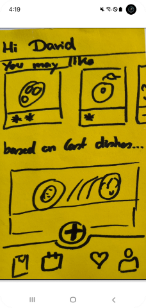 4:19
Hi David
You may like
based on last dishes...